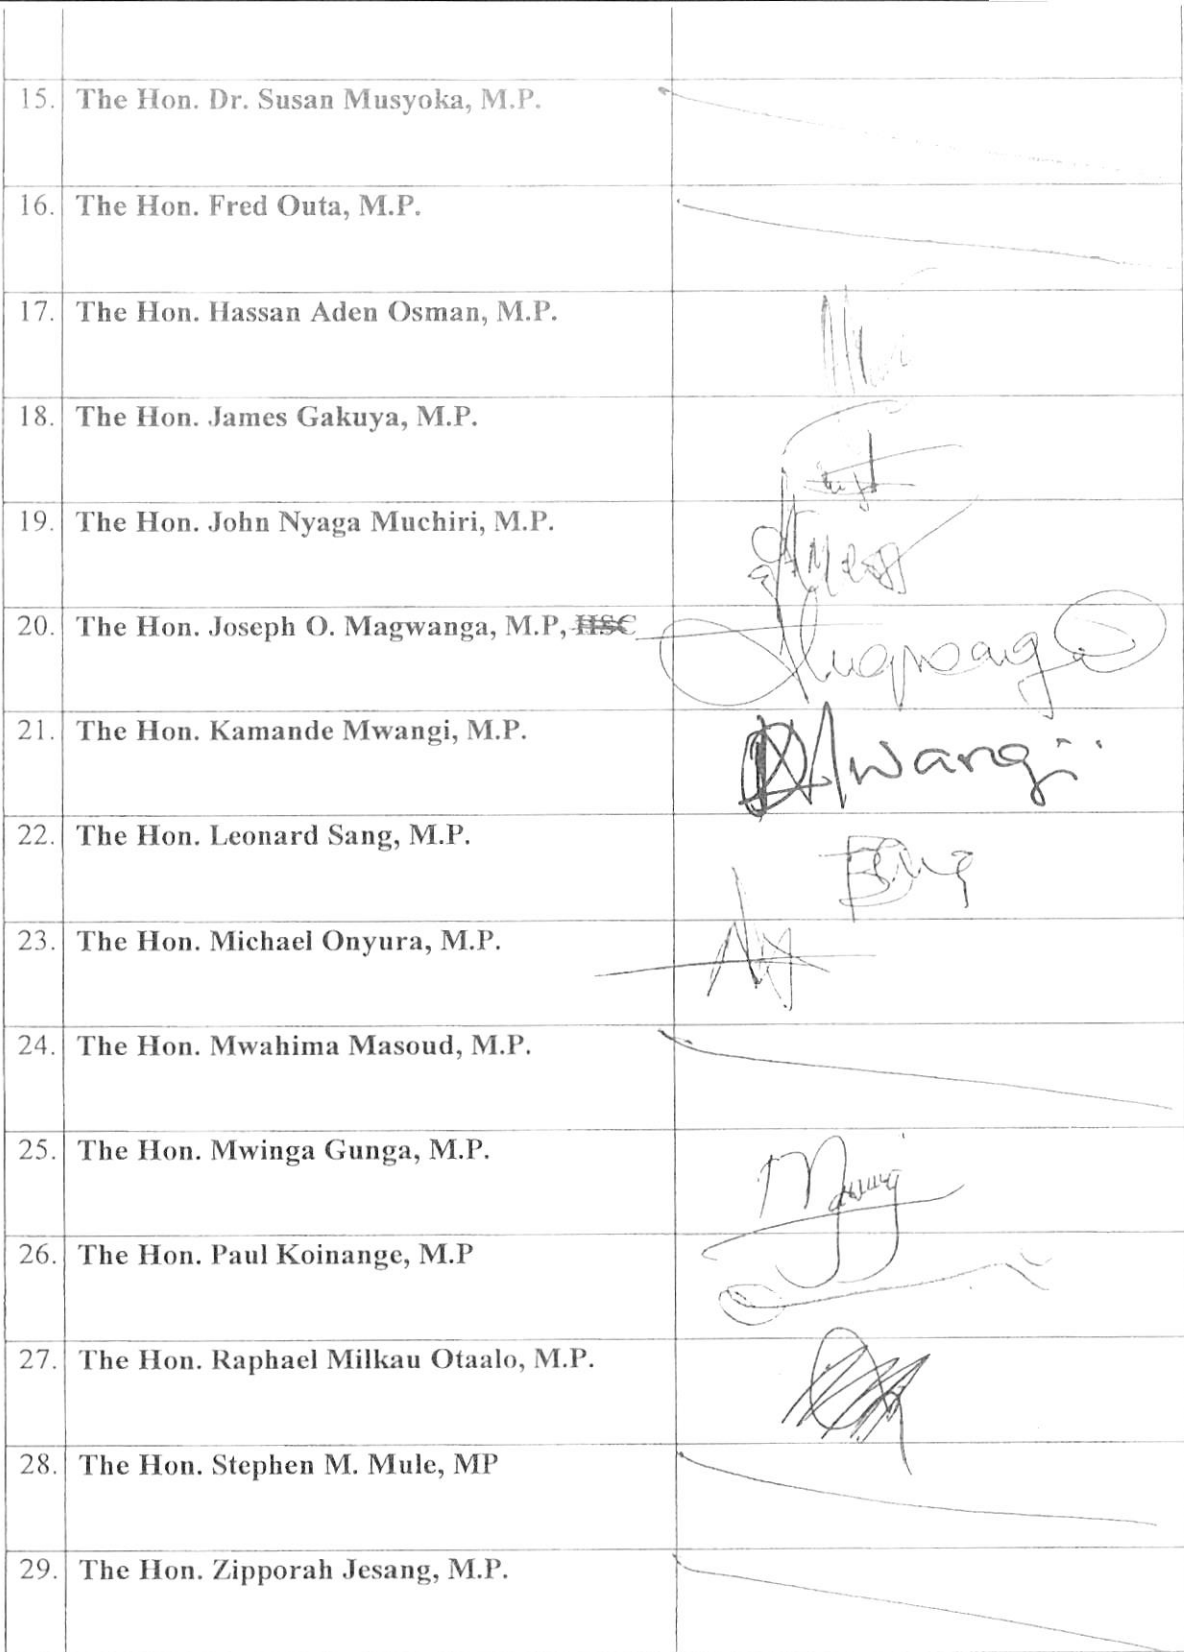 15. The Hon. Dr. Susan Musyoka, M.P.
16. The Hon. Fred Outa, M.P.
17. The Hon. Hassan Aden Osman, M.P.
18. The Hon. James Gakuya, M.P.
19. The Hon. John Nyaga Muchiri, M.P.
20. The Hon. Joseph O. Magwanga, M.P, HSC
21. The Hon. Kamande Mwangi, M.P. Mwangi
22. The Hon. Leonard Sang, M.P.
23. The Hon. Michael Onyura, M.P.
24. The Hon. Mwahima Masoud, M.P.
25. The Hon. Mwinga Gunga, M.P.
26. The Hon. Paul Koinange, M.P
27. The Hon. Raphael Milkau Otaalo, M.P.
28. The Hon. Stephen M. Mule, MP
29. The Hon. Zipporah Jesang, M.P.